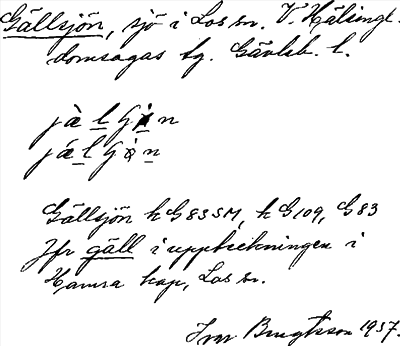 Gällsjön, sjö i Los sn. V. Hälsingl.
domsagas tg. Gävleb. l.
Gällsjön kG83SM, kG109, G83
Jfr gäll i uppteckningen i
Hamra kap, Los sn.
Ivar Bengtsson 1937.